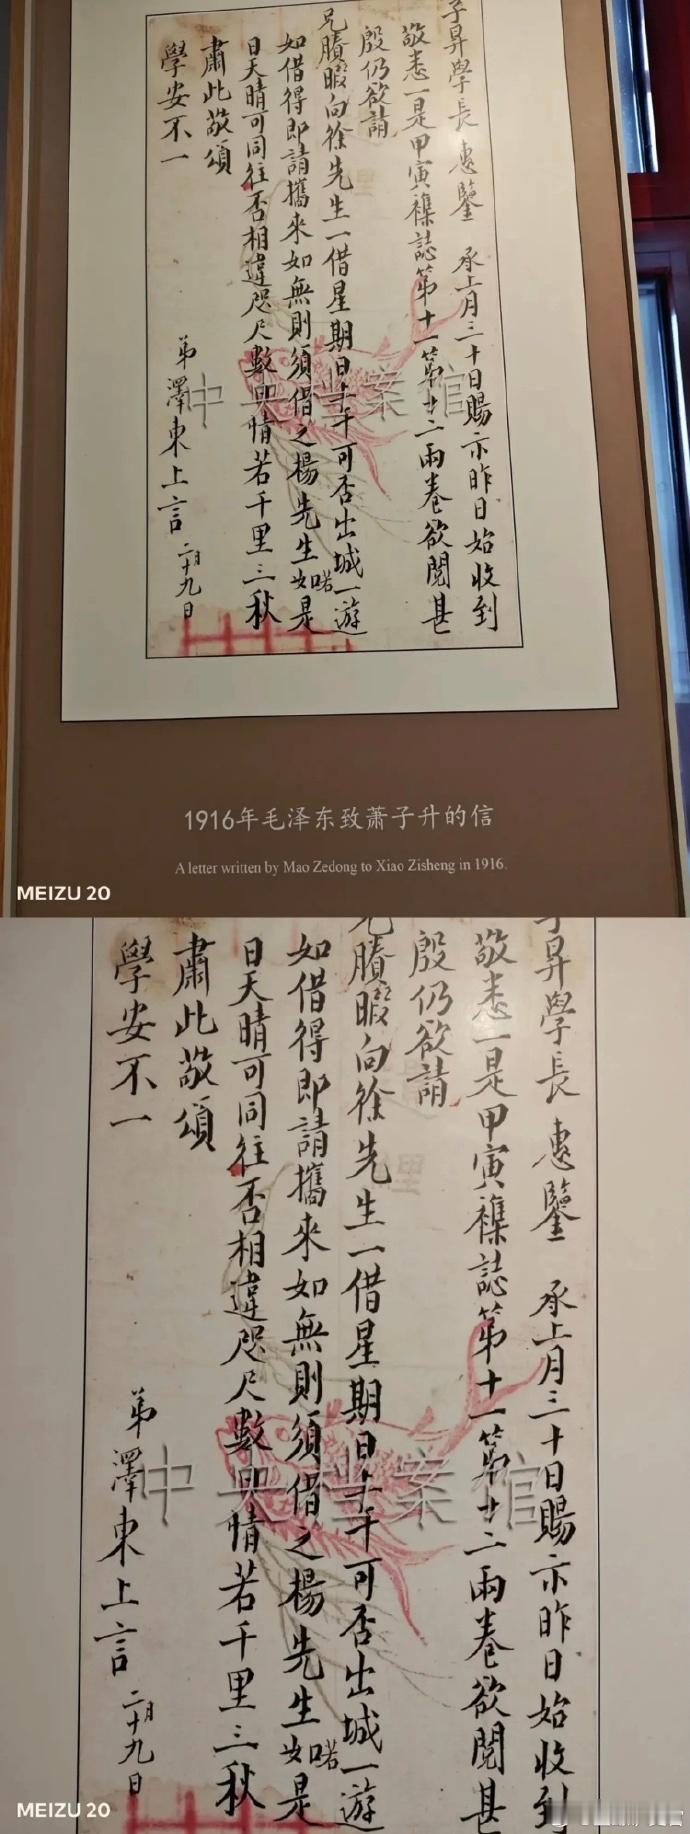 子昇學長 惠鑒 承上月三十日賜示昨日始收到
敬悉一是甲寅襍誌第十一第十二兩卷欲閱甚
殷仍欲請
兄賸暇向徐先生一借星期日上午可否出城一游
如借得即請攜來如無則須借之楊先生如喏是
日天晴可同往否相違咫尺數日情若千里三秋
肅此敬頌
學安不一
弟澤東上言 二月十九日
中央档案馆
1916年毛泽东致萧子升的信
A letter written by Mao Zedong to Xiao Zisheng in 1916.
MEIZU 20
子昇學長 惠鑒 承上月三十日賜示昨日始收到
敬悉一是甲寅襍誌第十一第十二兩卷欲閱甚
殷仍欲請
兄賸暇向徐先生一借星期日上午可否出城一游
如借得即請攜來如無則須借之楊先生如喏是
日天晴可同往否相違咫尺數日情若千里三秋
肅此敬頌
學安不一
弟澤東上言 二月十九日
中央档案馆
MEIZU 20